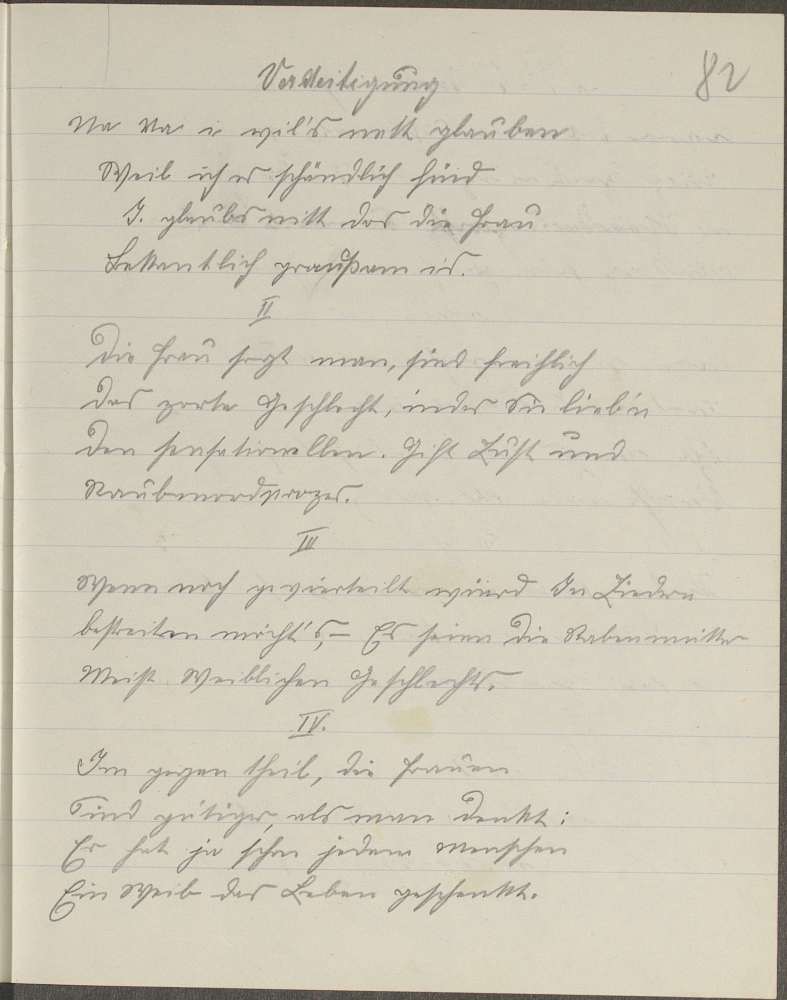 Verdeitigung
82
Na Na i wil's nett glauben
Weil ich es schändlich find
I. glaubs nitt das die Frau
Bekantlich graußam is.
II
Die Frau sagt man, sind freihlich
das zarte Geschlecht, indes Sie lieb'n
den sensationellen. Gift Lust und
Raubmordprozes.
III
Wenn noch gevierteilt würd In Liedern
bestreiten möcht's,– Es seien die Rabenmütter
Meist Weiblichen Geschlechts.
IV.
Im gegen theil, die Frauen
Sind gütiger, als man denkt:
Er hat ja schon jedem Menschen
Ein Weib das Leben geschenkt.